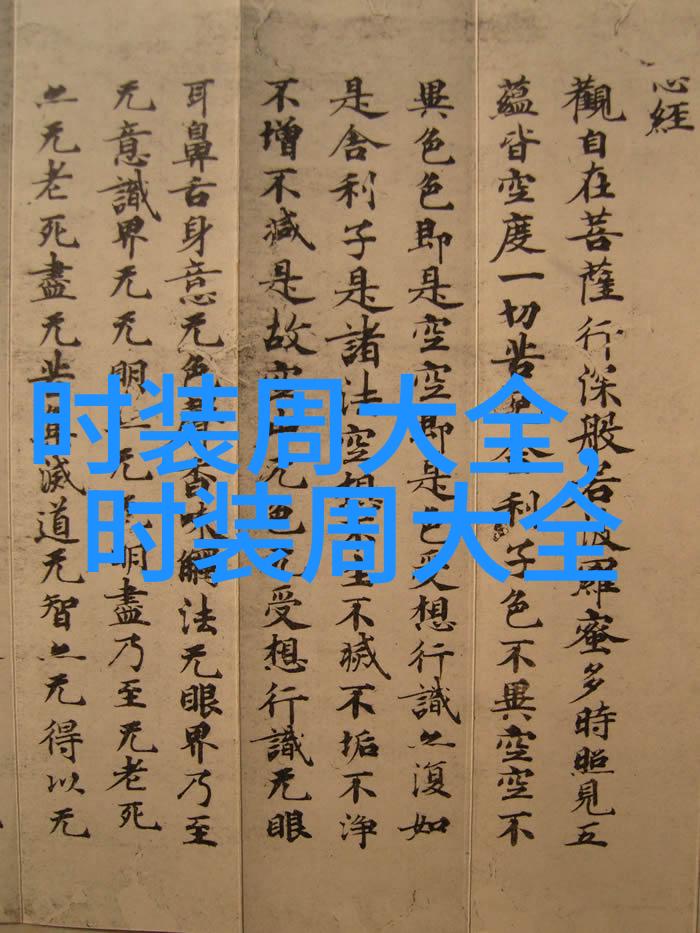 心經
觀自在菩薩行深般若波羅蜜多時照見五
蘊皆空度一切苦厄舍利子色不異空空不
異色色即是空空即是色受想行識亦復如
是舍利子是諸法空想不生不滅不垢不淨
不增不減是故空中无色无受想行識无眼
耳鼻舌身意无色聲香味觸法无眼界乃至
无意識界无无明亦无无明盡乃至无老死
亦无老死盡无苦集滅道无智亦无得以无
时装周大全,
时装周大全